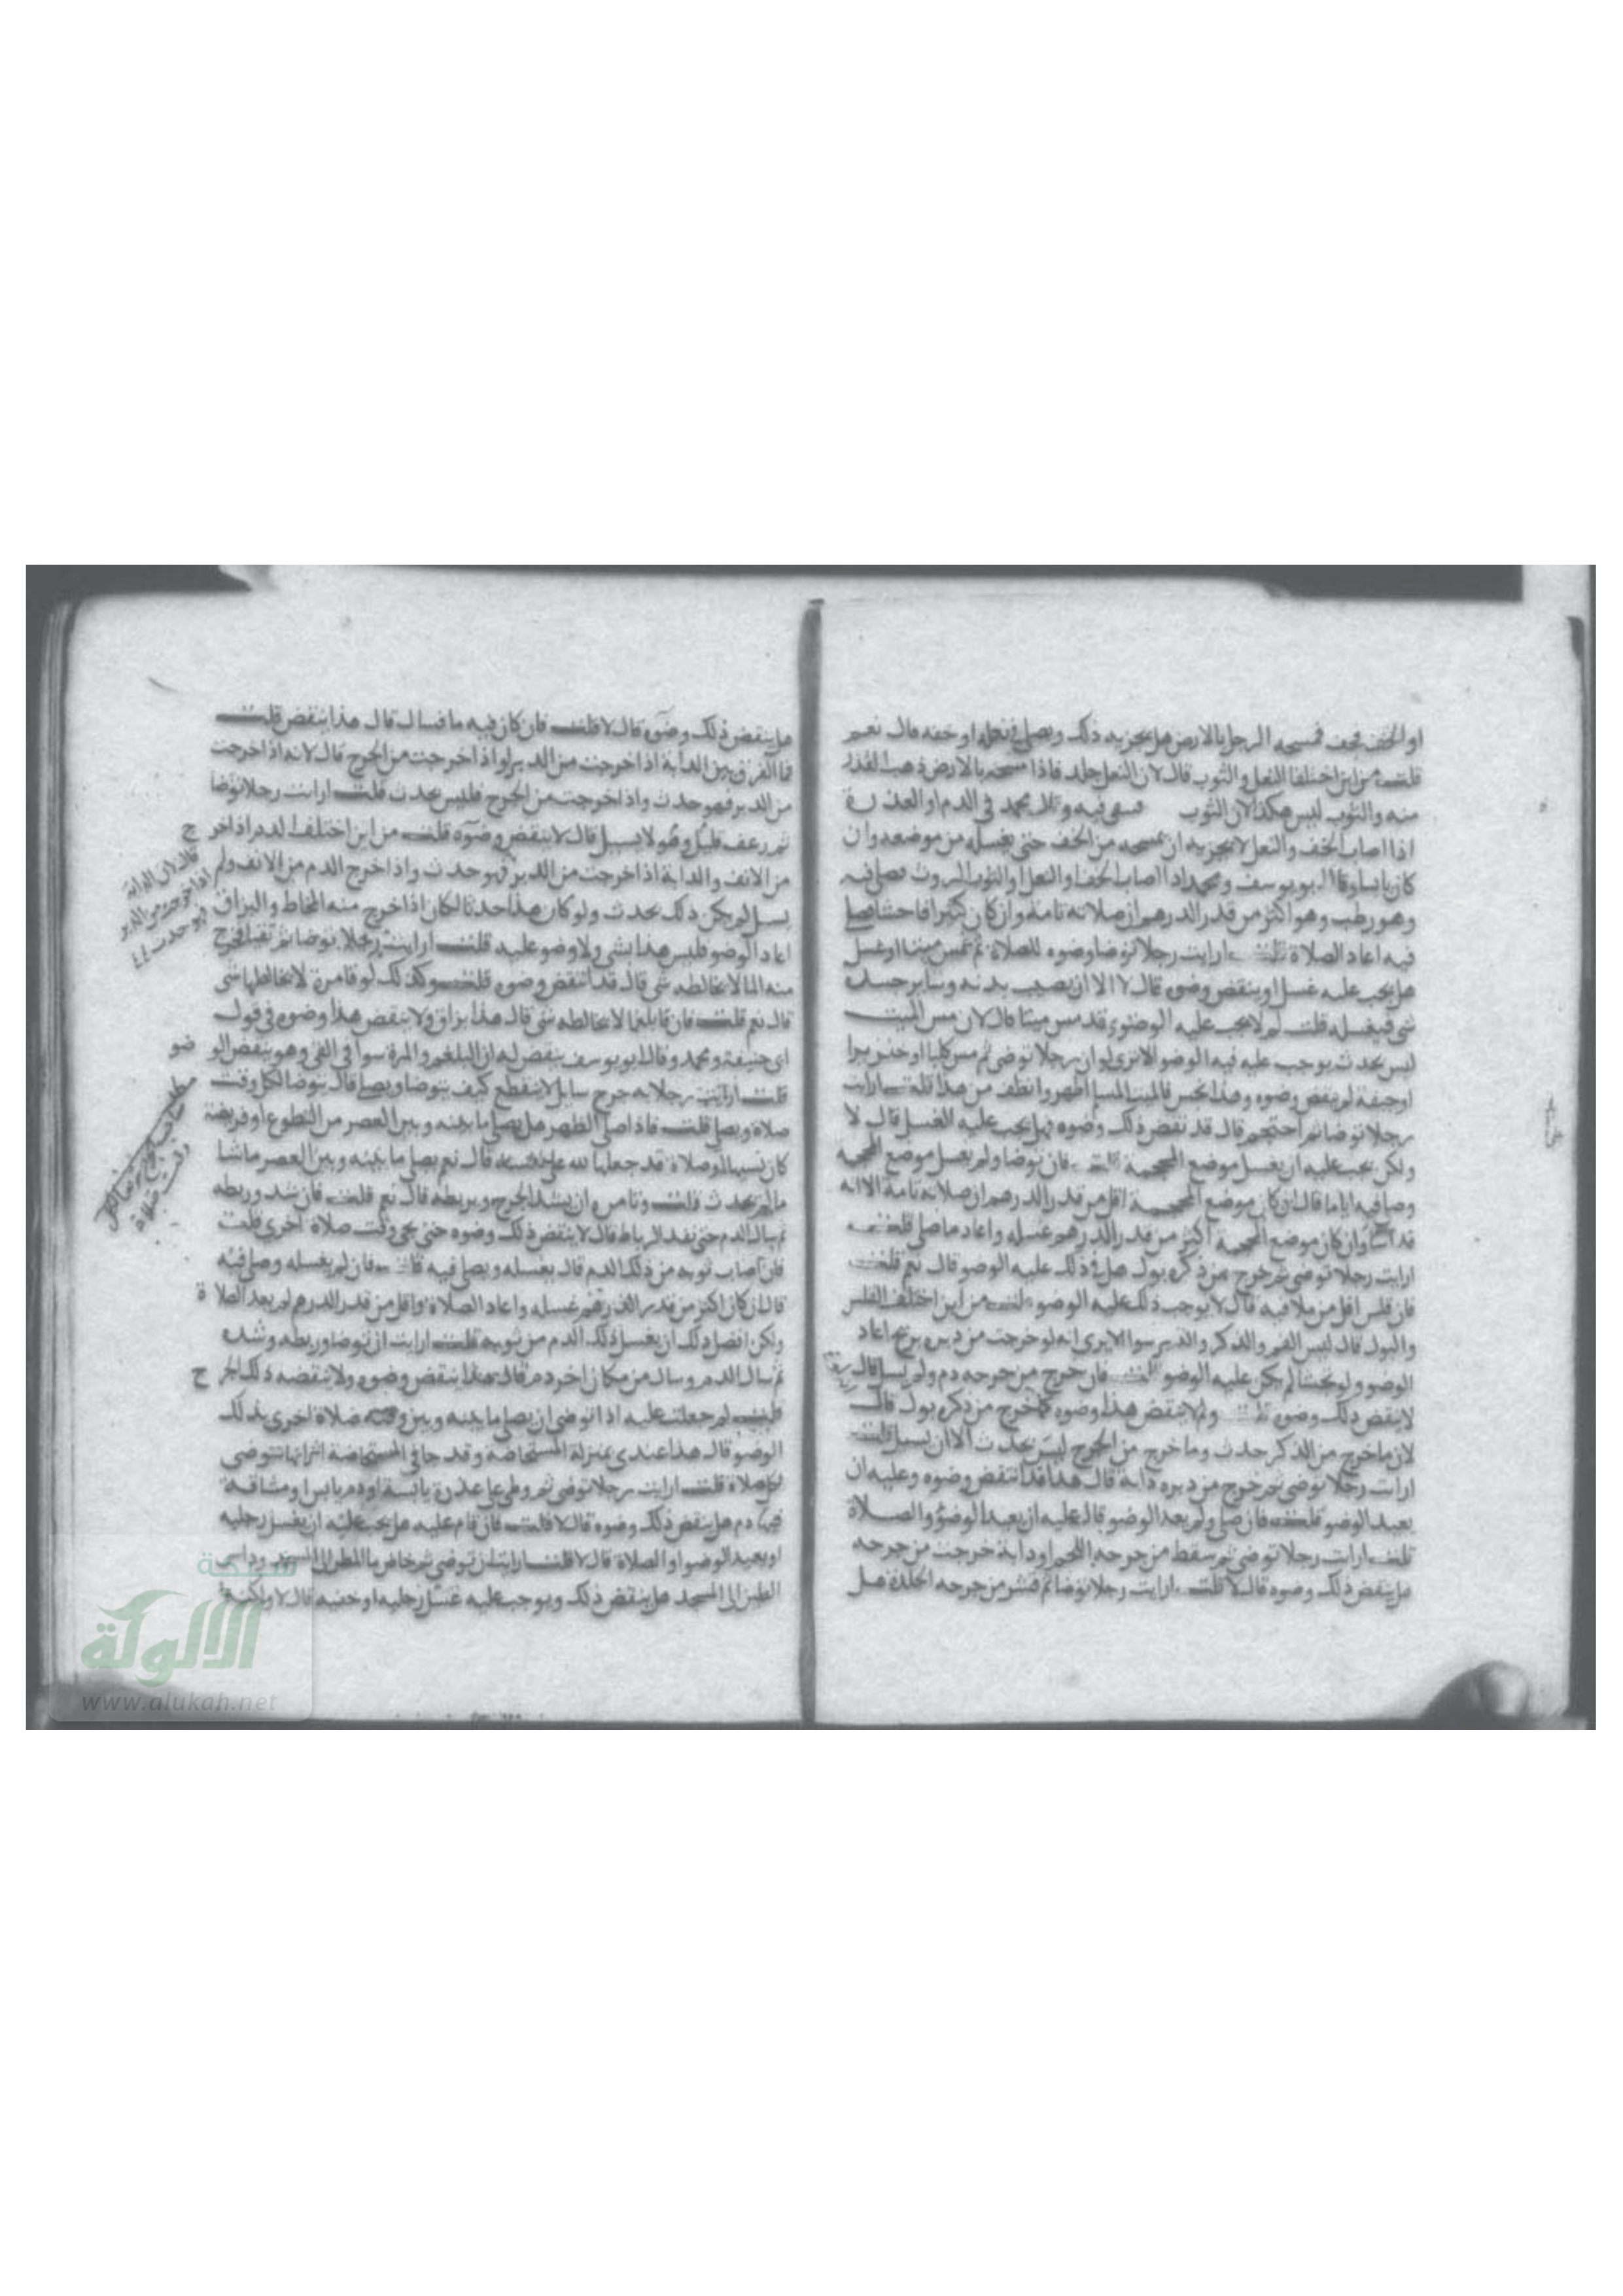 او الخف فجف فمسحه الرجل بالارض هل يجزيه ذلك ويصلي في نعله او خفه قال نعم
قلت من اين اختلفا النعل والثوب قال لان النعل جلد فاذا مسحه بالارض ذهب القذر
منه والثوب ليس هكذا لان الثوب فيه وقال محمد في الدم او العذرة
اذا اصاب الخف والنعل لا يجزيه ان يمسحه من الخف حتى يغسله من موضعه وان
كان يابسا وقال ابو يوسف ومحمد اذا اصاب الخف او النعل والثوب الروث فصلى فيه
وهو رطب وهو اكثر من قدر الدرهم ان صلاته تامة وان كان كثيرا فاحشا فصلى
فيه اعاد الصلاة قلت ارايت رجلا توضا وضوه للصلاة ثم مس ميتا او غسل
هل يجب عليه غسل او ينقض وضوه قال لا الا ان يصيب يده وساير جسده
شي فيغسله قلت لم لا يجب عليه الوضو وقد مس ميتا قال لان مس الميت
ليس بحدث يوجب عليه فيه الوضو الا ترى لو ان رجلا توضى ثم مس كلبا او خنزيرا
او جيفة لم ينقض وضوه وهذا نجس فالميت المسلم اطهر وانظف من هذا قلت ارايت
رجلا توضا ثم احتجم قال قد نقض ذلك وضوه فهل يجب عليه الغسل قال لا
ولكن يجب عليه ان يغسل موضع المحجمة قلت فان توضا ولم يغسل موضع المحجمة
وصلى فيه اياما قال ان كان موضع المحجمة اقل من قدر الدرهم ان صلاته تامة الا انه
قد اسا وان كان موضع المحجمة اكثر من قدر الدرهم غسله واعاد ما صلى قلت
ارايت رجلا توضى ثم خرج من ذكره بول هل في ذلك عليه الوضو قال نعم قلت
فان قلس اقل من ملا فيه قال لا يوجب ذلك عليه الوضو قلت من اين اختلف القلس
والبول قال ليس الفم والذكر والدبر سوا الا يرى انه لو خرجت من دبره ريح اعاد
الوضو ولو تجشا لم يكن عليه الوضو قلت فان خرج من جرحه دم ولم يسل قال
لا ينقض ذلك وضوه قلت ولم لا ينقض هذا وضوه كما خرج من ذكره بول قال
لان ما خرج من الذكر حدث وما خرج من الجرح ليس بحدث الا ان يسيل قلت
ارايت رجلا توضى ثم خرج من دبره دابة قال هذا قد انتقض وضوه وعليه ان
يعيد الوضو قلت فان صلى ولم يعد الوضو قال عليه ان يعيد الوضو والصلاة
قلت ارايت رجلا توضى ثم سقط من جرحه اللحم او دابة خرجت من جرحه
هل ينقض ذلك وضوه قال لا قلت ارايت رجلا توضا ثم قشر من جرحه الجلدة هل
هل ينقض ذلك وضوه قال لا قلت فان كان فيه ما فسال قال هذا ينقض قلت
فما الفرق بين الدابة اذا خرجت من الدبر او اذا خرجت من الجرح قال لانه اذا خرجت
من الدبر فهو حدث واذا خرجت من الجرح فليس بحدث قلت ارايت رجلا توضا
ثم رعف قليلا وهو لا يسيل قال لا ينقض وضوه قلت من اين اختلف الدم اذا خرج
من الانف والدابة اذا خرجت من الدبر فهو حدث واذا خرج الدم من الانف ولم
يسل لم يكن ذلك بحدث ولو كان هذا حدثا لكان اذا خرج منه المخاط والبزاق
اعاد الوضو فليس هذا بشي ولا وضو عليه قلت ارايت رجلا توضا ثم تقيا فخرج
منه الما لا يخالطه شي قال قد انتقض وضوه قلت وكذلك لو قا مرة لا يخالطها شي
قال نعم قلت فان قا بلغما لا يخالطه شي قال هذا بزاق ولا ينقض هذا وضوه في قول
ابي حنيفة ومحمد وقال ابو يوسف ينقض له ان البلغم والمرة سوا في القي وهو ينقض الوضو
قلت ارايت رجلا به جرح سايل لا ينقطع كيف يتوضا ويصلي قال يتوضا لكل وقت
صلاة ويصلي قلت فاذا صلى الظهر هل يصلي ما بينه وبين العصر من التطوع او فريضة
كان نسيها او صلاة قد جعلها لله عليه قال نعم يصلي ما بينه وبين العصر ما شا
ما لم يحدث قلت وتامره ان يشد الجرح ويربطه قال نعم قلت فان شد وربطه
ثم سال الدم حتى نفذ الرباط قال لا ينقض ذلك وضوه حتى يجي وقت صلاة اخرى قلت
فان اصاب ثوبه من ذلك الدم قال يغسله ويصلي فيه قلت فان لم يغسله وصلى فيه
قال ان كان اكثر من قدر الدرهم غسله واعاد الصلاة واقل من قدر الدرهم لم يعد الصلاة
ولكن افضل ذلك ان يغسل ذلك الدم من ثوبه قلت ارايت ان توضا وربطه وشده
ثم سال الدم وسال من مكان اخر دم قال هذا ينقض وضوه ولا ينقضه ذلك الجرح
قلت لم جعلت عليه اذا توضى ان يصلي ما بينه وبين وقت صلاة اخرى بذلك
الوضو قال هذا عندي بمنزلة المستحاضة وقد جا في المستحاضة اثر انها تتوضى
لكل صلاة قلت ارايت رجلا توضى ثم وطي على عذرة يابسة او دم يابس او
فيها دم هل ينقض ذلك وضوه قال لا قلت فان قام عليه هل يجب عليه ان يغسل رجليه
او يعيد الوضو او الصلاة قال لا قلت ارايت ان توضى ثم خاض ما المطر الى المسجد وداس
الطين الى المسجد هل ينقض ذلك ويوجب عليه غسل رجليه او خفيه قال لا ولكن
قال لان الدابة
اذا خرجت من الدبر
فهو حدث
شبكة
الالوكة
www.alukah.net